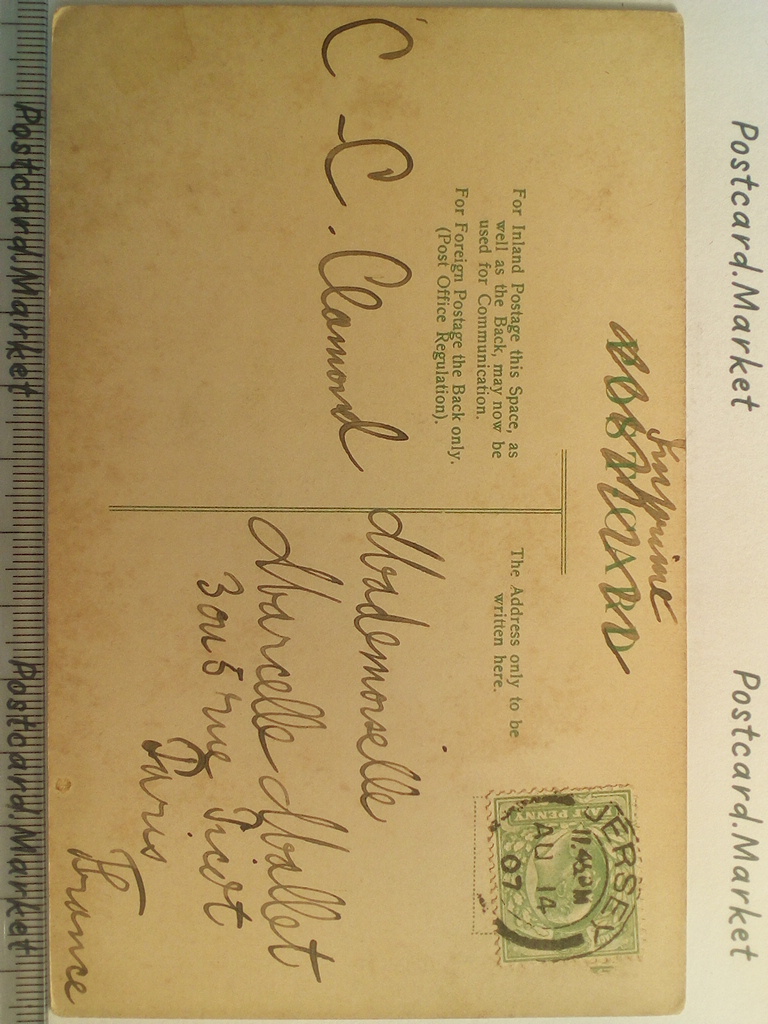 Imprimé
POST CARD
For Inland Postage this Space, as
well as the Back, may now be
used for Communication.
For Foreign Postage the Back only.
(Post Office Regulation).
The Address only to be
written here.
C C. Clamond
Mademoiselle
Marcelle Mallet
3 ou 5 rue Picot
Paris
France
JERSEY
11.45PM
AU 14
07
PENNY
Postcard.Market
Postcard.Market
Postcard.Market
Postcard.Market
Postcard.Market